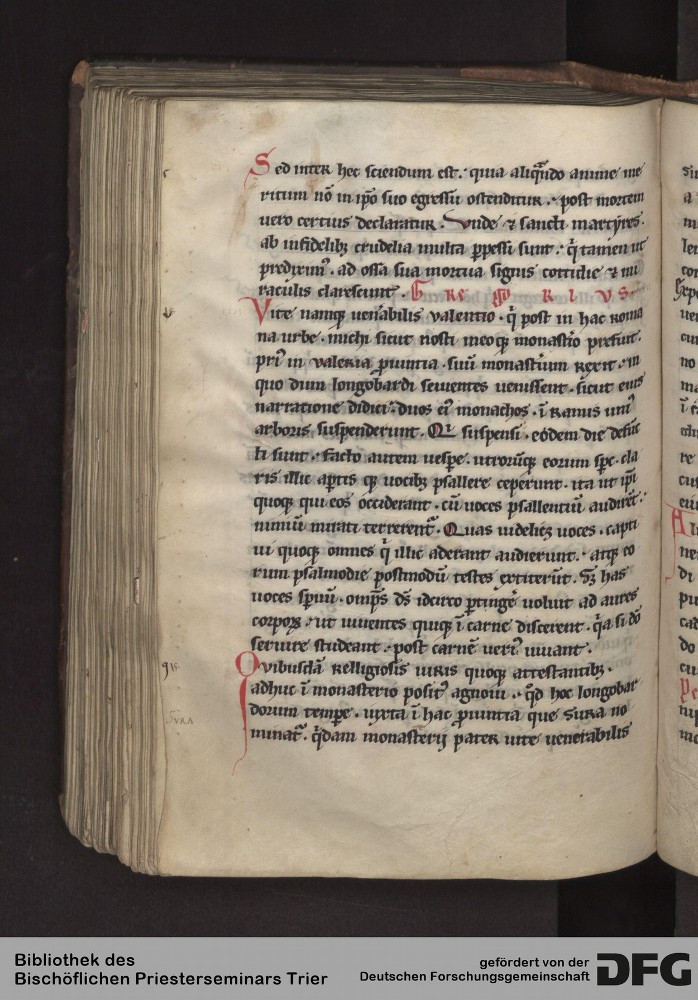 Sed inter hec sciendum est. quia aliqñdo anime me
ritum nō in ip̄o suo egressu ostenditur. post mortem
uero certius declaratur. Vnde ⁊ sancti martyres.
ab infidelibꝫ crudelia multa ꝑpessi sunt. q̄ tamen ut
predixim᷒. ad ossa sua mortua signis cottidie ⁊ mi
raculis clarescunt. GREGORIVS.
Vite namqꝫ uen̄abilis valentio. q̄ post in hac roma
na urbe. michi sicut nosti meoqꝫ monast̄io prefuit.
pri᷒ in valeria ꝓuintia. suū monast̄ium rexit. in
quo dum longobardi seuientes uenissent. sicut eius
narratione didici. duos ei᷒ monachos. ī ramis uni᷒
arboris suspenderunt. Qui suspensi. eodem die defūc
ti sunt. facto autem uesꝑe. utrorūqꝫ eorum sp̄c. cla
ris illic aꝑtis qꝫ uocibꝫ psallere ceperunt. ita ut ip̄i
quoqꝫ qui eos occiderant. cū uoces psallentiū audirēt.
nimiū mirati terrerent̄. Quas videlicꝫ uoces. capti
ui quoqꝫ omnes q̄ illic aderant audierunt. atqꝫ eo
rum psalmodie postmodū testes extiterūt. Sꝫ has
uoces sp̄uū. omp̄s d̄s idcirco ꝑtinḡe uoluit ad aures
corpoꝝ. ut uiuentes quiqꝫ ī carne discerent. q̄a si dō
seruire studeant. post carnē ueri᷒ uiuant.
Qvibusdā relligiosis uiris quoqꝫ attestantibꝫ.
adhuc ī monasterio posit᷒ agnoui. qd̄ hoc longobar
dorum temꝑe. iuxta ī hac ꝓuintia que sura no
minat̄. q̄dam monasterij pater uite uenerabilis
SVRA
Bibliothek des
Bischöflichen Priesterseminars Trier
gefördert von der
Deutschen Forschungsgemeinschaft
DFG